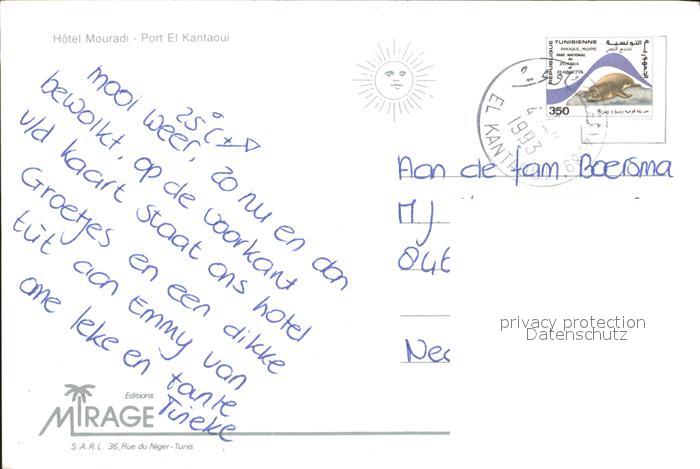 Hôtel Mouradi - Port El Kantaoui
mooi 25°C
weer, zo nu en dan
bewolkt, op de voorkant
v/d kaart staat ons hotel
Groetjes en een dikke
tût aan Emmy van
ome Ieke en tante
Tineke
Editions
MIRAGE
S.A.R.L. 36, Rue du Niger - Tunis
REPUBLIQUE TUNISIENNE
البريد التونسية
PHOQUE-MOINE
PARC NATIONAL
ZEMBRA
ZEMBRETTA
350
EL KANTAOUI
1993
Aan de fam. Boersma
MJ
846
Ned
privacy protection
Datenschutz